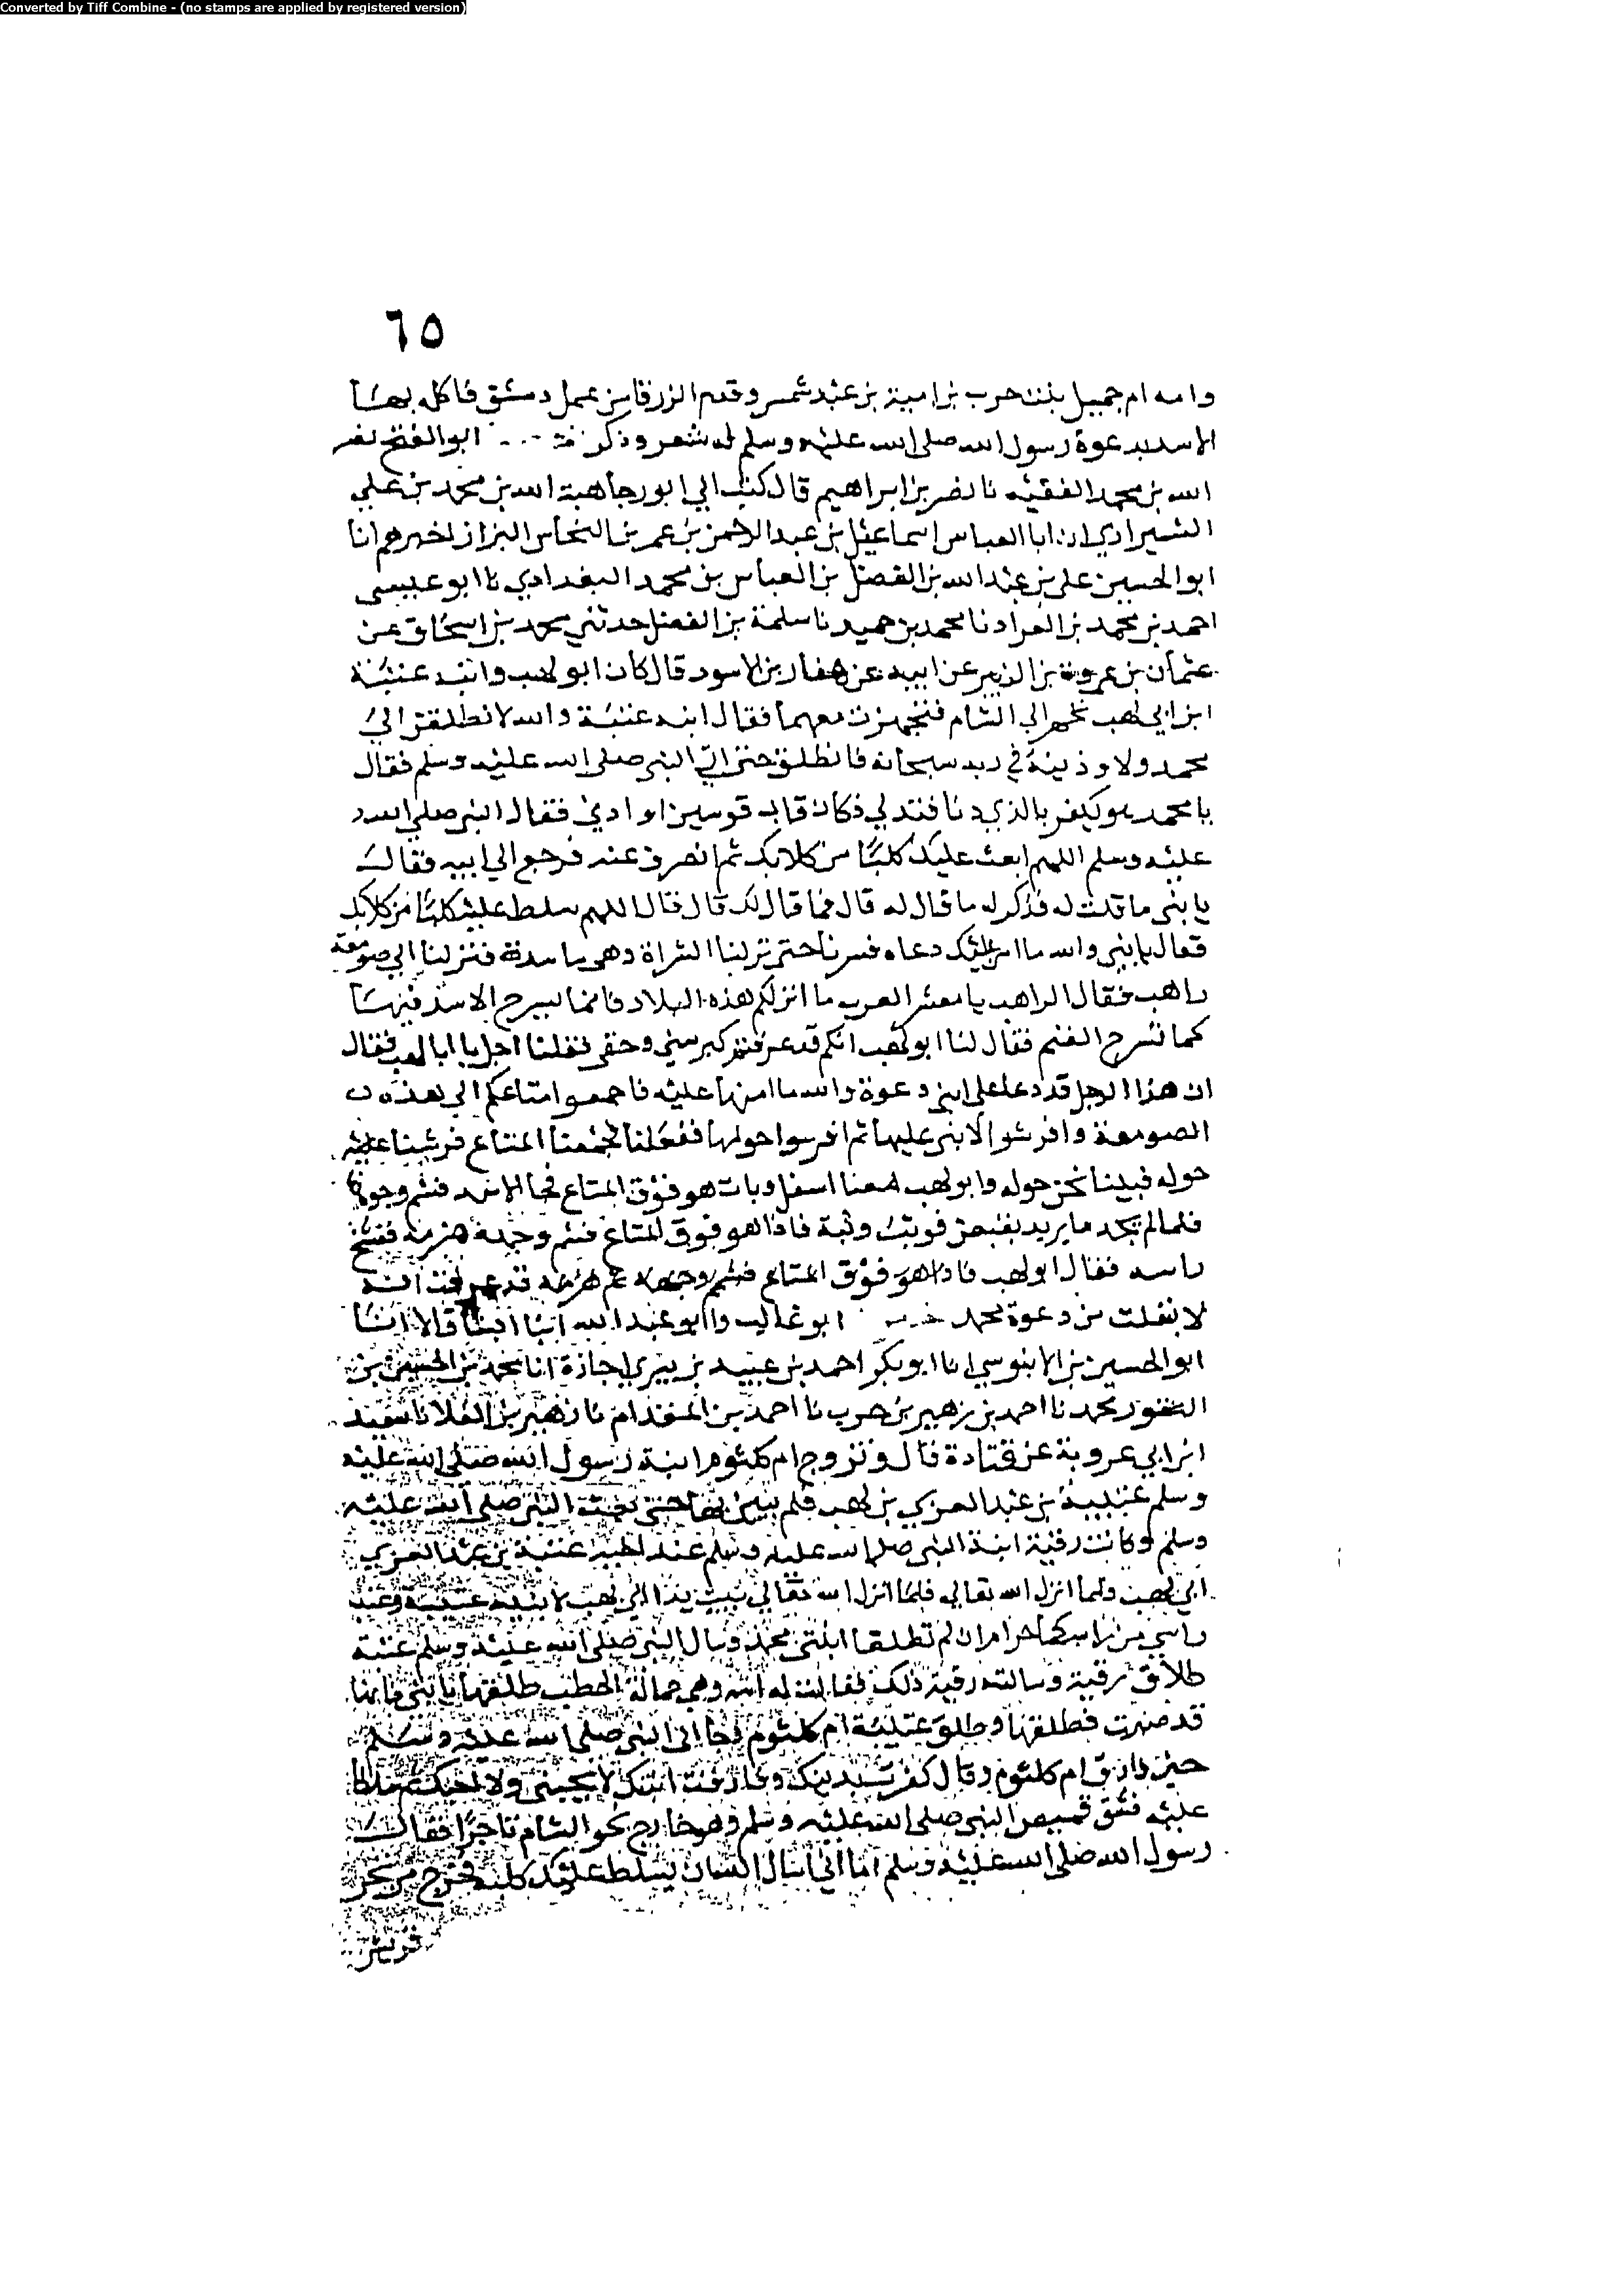 Converted by Tiff Combine - (no stamps are applied by registered version)
٦٥
وامه ام جميل بنت حرب بن امية بن عبد شمس وقدم الزرقا من عمل دمشق فاكله بها
الاسد بدعوة رسول الله صلى الله عليه وسلم له شعر وذكر ابو الفتح نصر
الله بن محمد الفقيه نا نصر بن ابراهيم قال كتب الي ابو رجا هبة الله بن محمد بن علي
الشيرازي ان ابا العباس اسماعيل بن عبد الرحمن بن عمر بن النحاس البزاز اخبرهم انا
ابو الحسين علي بن عبد الله بن الفضل بن العباس بن محمد البغدادي نا ابو عيسى
احمد بن محمد بن العراد نا محمد بن حميد نا سلمة بن الفضل حدثني محمد بن اسحاق عن
عثمان بن عروة بن الزبير عن ابيه عن هبار بن الاسود قال كان ابو لهب وابنه عتبة
ابن ابي لهب تجهزا الى الشام فتجهزت معهما فقال ابنه عتبة والله لانطلقن الى
محمد ولاوذينه في ربه سبحانه فانطلق حتى اتى النبي صلى الله عليه وسلم فقال
يا محمد هو يكفر بالذي دنا فتدلى فكان قاب قوسين او ادنى فقال النبي صلى الله
عليه وسلم اللهم ابعث عليك كلبا من كلابك ثم انصرف عنه فرجع الى ابيه فقال
يا بني ما قلت له فذكر له ما قال له قال فما قال لك قال قال اللهم سلط عليه كلبا من كلابك
فقال يا بني والله ما امن عليك دعاه فسرنا حتى نزلنا الشراة وهي ماسدة فنزلنا الى صومعة
راهب فقال الراهب يا معشر العرب ما انزلكم هذه البلاد فانما يسرح الاسد فيها
كما تسرح الغنم فقال لنا ابو لهب انكم قد عرفتم كبر سني وحقي فقلنا اجل يا ابا لهب فقال
ان هذا الرجل قد دعا على ابني دعوة والله ما امنها عليه فاجمعوا متاعكم الى هذه
الصومعة وافرشوا لابني عليها ثم افرشوا حولها ففعلنا فجمعنا المتاع فرشنا عليه
حوله فبينا نحن حوله وابو لهب معنا اسفل وبات هو فوق المتاع فجا الاسد فشم وجوهنا
فلما لم يجد ما يريد تقبض فوثب وثبة فاذا هو فوق المتاع فشم وجهه هزمة ففسخ
راسه فقال ابو لهب فاذا هو فوق المتاع فشم وجهه ثم هزمه قد عرفت انه
لا ينفلت من دعوة محمد ابو غالب وابو عبد الله ابنا البنا قالا انا
ابو الحسين بن الابنوسي انا ابو بكر احمد بن عبيد بن بيري اجازة انا محمد بن الحسين بن
محمد نا احمد بن زهير بن حرب نا احمد بن المقدام نا زهير بن العلا نا سعيد
ابن ابي عروبة عن قتادة قال وتزوج ام كلثوم ابنة رسول الله صلى الله عليه
وسلم عتيبة بن عبد العزي بن لهب فلم يبن بها حتى بعث النبي صلى الله عليه
وسلم وكانت رقية ابنة النبي صلى الله عليه وسلم عند اخيه عتبة بن عبد العزي
ابي لهب ولما انزل الله تعالى فلما انزل الله تعالى تبت يدا ابي لهب لابنيه عتيبة وعتبة
راسي من راسكما حرام ان لم تطلقا ابنتي محمد وسال النبي صلى الله عليه وسلم عتبة
طلاق رقية وسالته رقية ذلك فقالت له امه وهي حمالة الحطب طلقها يا بني فانها
قد فطلقها وطلق عتيبة ام كلثوم فجا الى النبي صلى الله عليه وسلم
حين فارق ام كلثوم وقال كفرت بدينك وفارقت ابنتك لا تحبني ولا احبك
عليه فشق قميص النبي صلى الله عليه وسلم وهو خارج نحو الشام تاجرا فقال
رسول الله صلى الله عليه وسلم اما اني اسال الله ان يسلط عليك كلبه فخرج من تجر
قريش